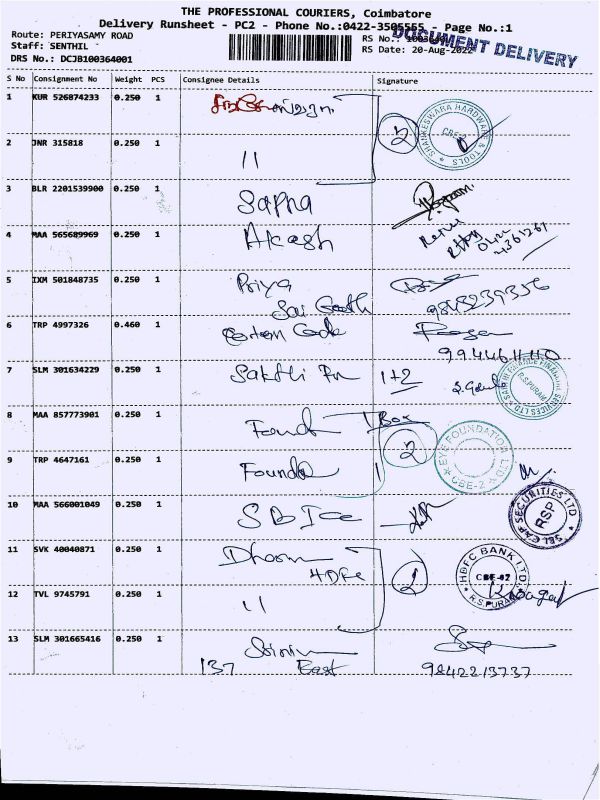 THE PROFESSIONAL COURIERS, Coimbatore
Delivery Runsheet - PC2 - Phone No.:0422-3505555 - Page No.:1
Route: PERIYASAMY ROAD
RS No.:
DOCUMENT DELIVERY
Staff: SENTHIL
RS Date: 20-Aug-2022
DRS No.: DCJB100364001
S No Consignment No Weight PCS Consignee Details Signature
1 KUR 526874233 0.250 1
2 SHANKESWARA HARDWARE & TOOLS CBE-2
2 JNR 315818 0.250 1 11
3 BLR 2201539900 0.250 1 Sapna
4 MAA 565689969 0.250 1 Akash
0422
4361261
5 IXM 501848735 0.250 1 Priya
Sai 9843239356
6 TRP 4997326 0.460 1 Cotton
9944611110
7 SLM 301634229 0.250 1 Sakthi Fin 1+2
FINANCIAL SERVICES LTD R.S.PURAM
8 MAA 857773901 0.250 1 1 Box
2 EYE FOUNDATION LTD CBE-2
9 TRP 4647161 0.250 1
10 MAA 566001049 0.250 1
SECURITIES LTD RSP
11 SVK 40040871 0.250 1
HDFC BANK LTD CBE-02 R.S.PURAM
12 TVL 9745791 0.250 1 11
13 SLM 301665416 0.250 1
137 East 9842213737